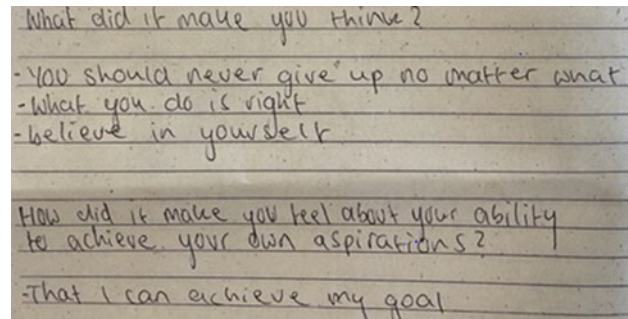 What did it make you think?
- You should never give up no matter what
- What you do is right
- believe in yourself
How did it make you feel about your ability
to achieve your own aspirations?
- That I can achieve my goal